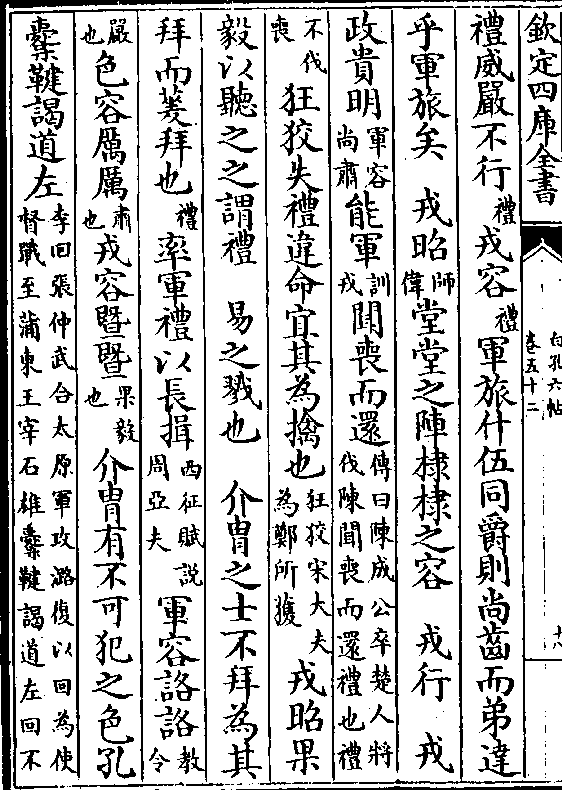 欽定四庫全書
白孔六帖
卷五十二
十八
禮威嚴不行禮戎容禮軍旅什伍同爵則尚齒而弟違
乎軍旅矣　戎昭師偉堂堂之陣棣棣之容　戎行　戎
政貴明軍容尚肅能軍訓戎聞喪而還傳曰陳成公卒楚人將伐陳聞喪而還禮也禮
不伐喪狂狡失禮違命宜其為擒也狂狡宋大夫為鄭所獲戎昭果
毅以聽之之謂禮　易之戮也　介胄之士不拜為其
拜而蓌拜也禮率軍禮以長揖西征賦說周亞夫軍容詻詻教令
嚴也色容厲厲肅也戎容暨暨果毅也介胄有不可犯之色孔
櫜鞬謁道左李回張仲武合太原軍攻潞復以回為使督戰至蒲東王宰石雄櫜鞬謁道左回不